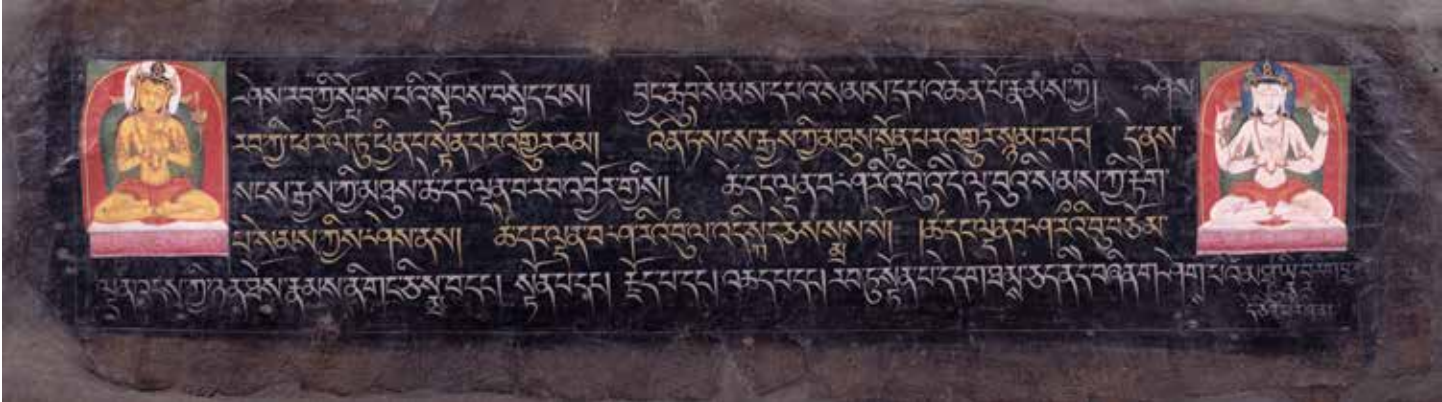 ཤེས་རབ་ཀྱི་སྤོབས་པའི་སྟོབས་བསྐྱེད་པས། བྱང་ཆུབ་སེམས་དཔའ་སེམས་དཔའ་ཆེན་པོ་རྣམས་ཀྱི། ཤེས
རབ་ཀྱི་ཕ་རོལ་ཏུ་ཕྱིན་པ་སྟོན་པར་འགྱུར་རམ། འོན་ཏེ་སངས་རྒྱས་ཀྱི་མཐུས་སྟོན་པར་འགྱུར་སྙམ་བ་དང། དེ་ནས་
སངས་རྒྱས་ཀྱི་མཐུས་ཚེ་དང་ལྡན་བ་རབ་འབྱོར་གྱིས། ཚེ་དང་ལྡན་བ་ཤ་རིའི་བུའི་དེ་ལྟ་བུའི་སེམས་ཀྱི་རྟོག་
པ་སེམས་ཀྱིས་ཤེས་ནས།། ཚེ་དང་ལྡན་བ་ཤ་རིའི་བུ་ལ་འདི་སྐད་ཅེས་སྨྲས་སོ། །ཚེ་དང་ལྡན་བ་ཤ་རིའི་བུ་བཅོམ་
ལྡན་འདས་ཀྱི་ཉན་ཐོས་རྣམས་ནི་གང་ཅི་སྨྲ་བ་དང། སྟོན་པ་དང། རྗོད་པ་དང། འཆད་པ་དང། རབ་ཏུ་སྟོན་པ་དེ་དག་ཐམས་ཅད་ནི་དེ་བཞིན་གཤེགས་པའི་མཐུ་